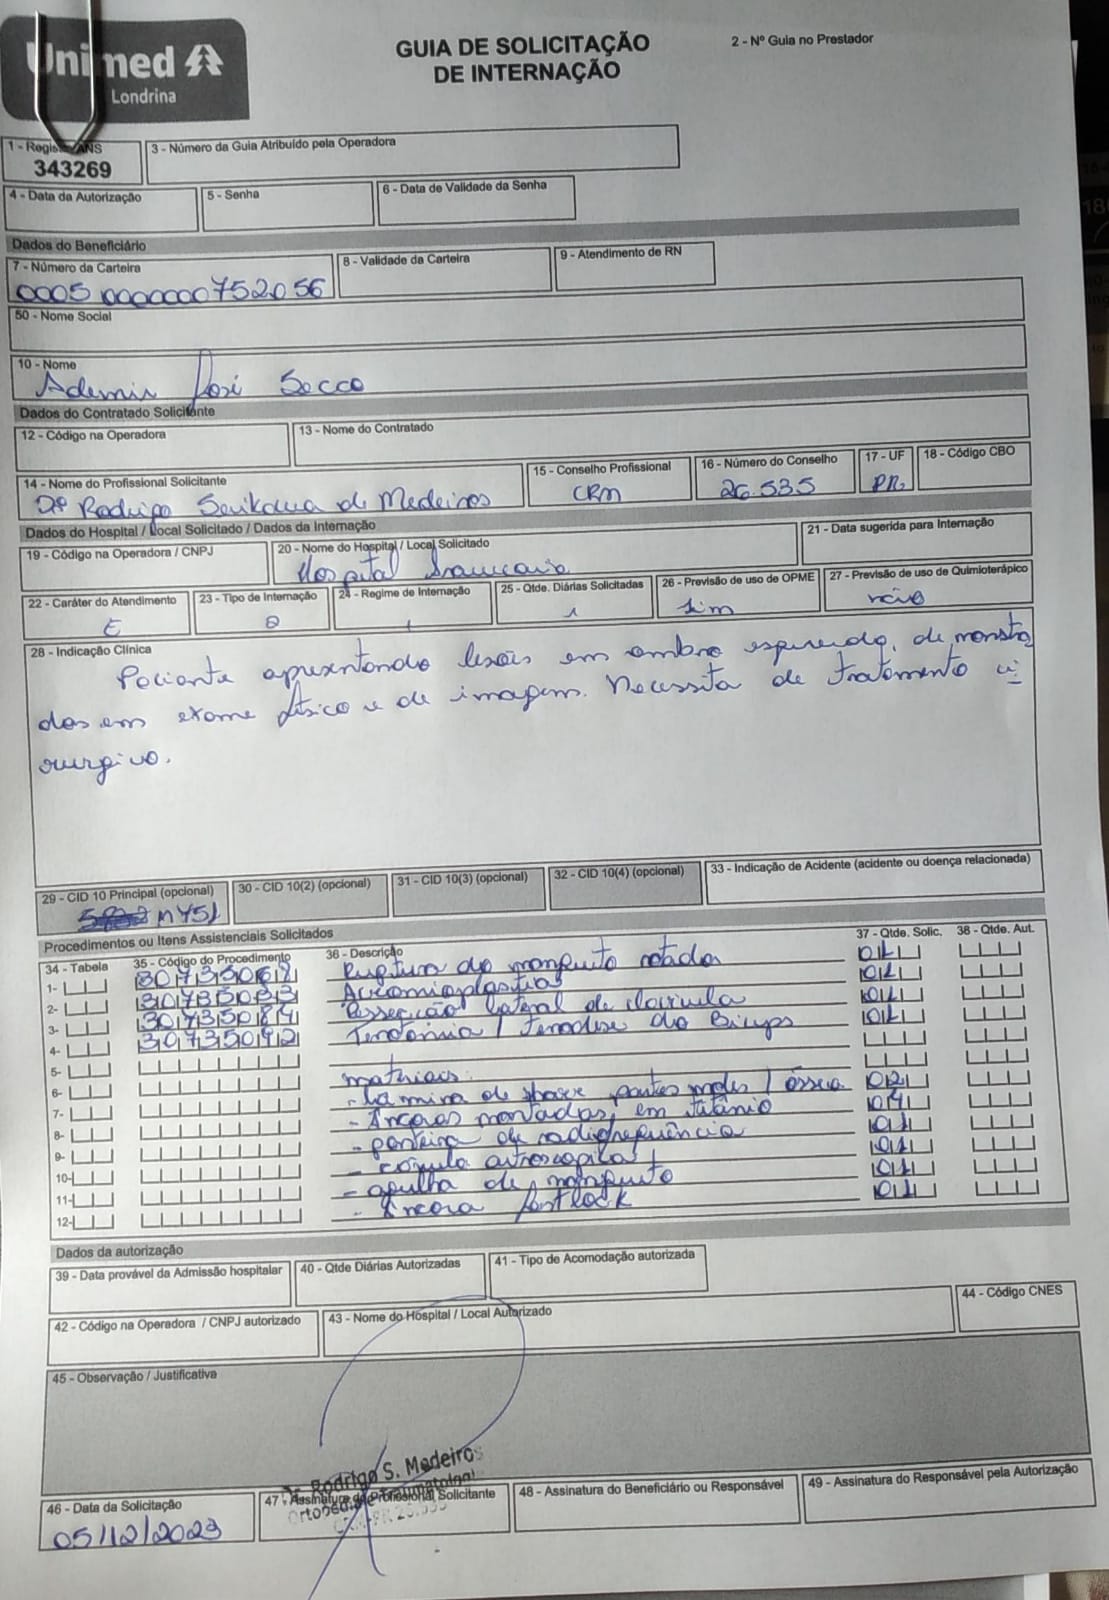 Unimed
Londrina
GUIA DE SOLICITAÇÃO
DE INTERNAÇÃO
2 - Nº Guia no Prestador
1 - Registro ANS
343269
3 - Número da Guia Atribuído pela Operadora
4 - Data da Autorização
5 - Senha
6 - Data de Validade da Senha
Dados do Beneficiário
7 - Número da Carteira
0005 0000000752056
8 - Validade da Carteira
9 - Atendimento de RN
50 - Nome Social
10 - Nome
Ademir José Secco
Dados do Contratado Solicitante
12 - Código na Operadora
13 - Nome do Contratado
14 - Nome do Profissional Solicitante
Dr Rodrigo de Medeiros
15 - Conselho Profissional
CRM
16 - Número do Conselho
26.535
17 - UF
PR.
18 - Código CBO
Dados do Hospital / Local Solicitado / Dados da Internação
19 - Código na Operadora / CNPJ
20 - Nome do Hospital / Local Solicitado
Hospital Araucária
21 - Data sugerida para Internação
22 - Caráter do Atendimento
E
23 - Tipo de Internação
24 - Regime de Internação
1
25 - Qtde. Diárias Solicitadas
1
26 - Previsão de uso de OPME
sim
27 - Previsão de uso de Quimioterápico
não
28 - Indicação Clínica
Paciente apresentando lesões em ombro esquerdo, demonstra
das em exame físico e de imagem. Necessita de tratamento ci
rurgivo.
29 - CID 10 Principal (opcional)
M751
30 - CID 10(2) (opcional)
31 - CID 10(3) (opcional)
32 - CID 10(4) (opcional)
33 - Indicação de Acidente (acidente ou doença relacionada)
Procedimentos ou Itens Assistenciais Solicitados
34 - Tabela
35 - Código do Procedimento
36 - Descrição
37 - Qtde. Solic.
38 - Qtde. Aut.
1- 30735068 Ruptura do manguito rotador 01
2- 30735033 Acromioplastia 01
3- 30735084 Ressecção lateral de clavícula 01
4- 30735092 Tenotomia / Tenodese do Biceps 01
5-
6- materiais:
7- - Lamina de shaver partes moles / óssea 02
8- - Âncoras montadas, em titânio 04
9- - ponteira de radiofrequência 01
10- - cânula artroscopica 01
11- - agulha de manguito 01
12- - Âncora footlock 01
Dados da autorização
39 - Data provável da Admissão hospitalar
40 - Qtde Diárias Autorizadas
41 - Tipo de Acomodação autorizada
42 - Código na Operadora / CNPJ autorizado
43 - Nome do Hospital / Local Autorizado
44 - Código CNES
45 - Observação / Justificativa
Rodrigo S. Medeiros
Ortopedia e Traumatologia
46 - Data da Solicitação
05/12/2023
47 - Assinatura do Profissional Solicitante
48 - Assinatura do Beneficiário ou Responsável
49 - Assinatura do Responsável pela Autorização